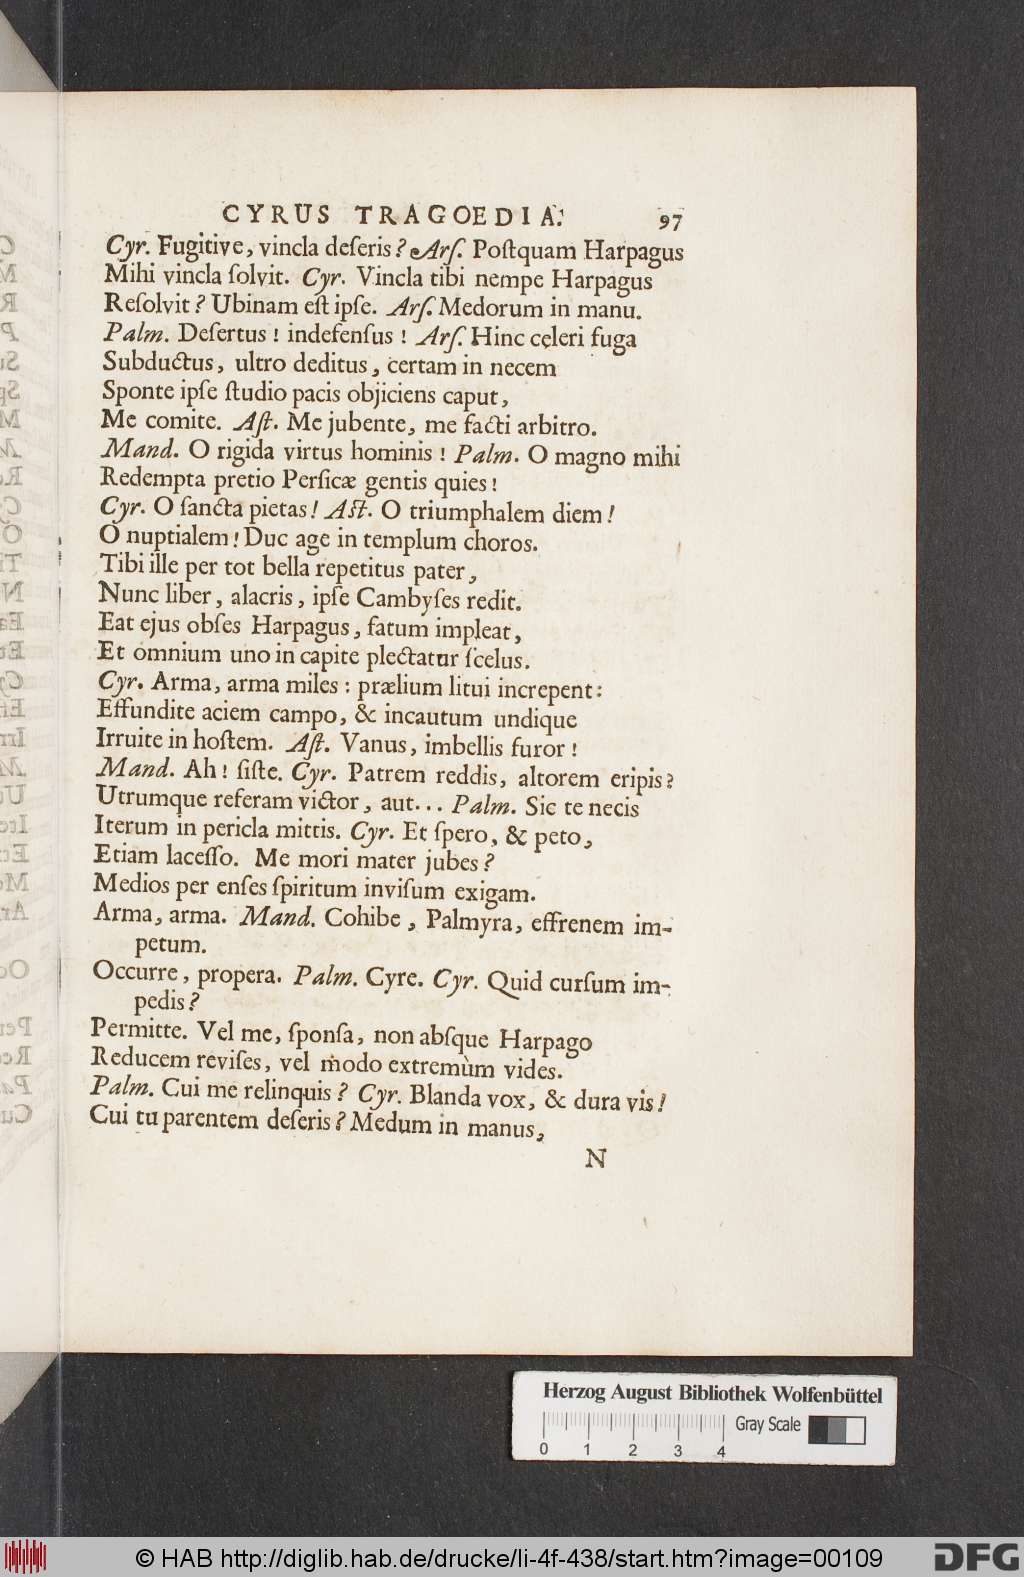 CYRUS TRAGOEDIA. 97
Cyr. Fugitive, vincla deſeris? Arſ. Poſtquam Harpagus
Mihi vincla ſolvit. Cyr. Vincla tibi nempe Harpagus
Reſolvit? Ubinam eſt ipſe. Arſ. Medorum in manu.
Palm. Deſertus! indefenſus! Arſ. Hinc celeri fuga
Subductus, ultro deditus, certam in necem
Sponte ipſe ſtudio pacis objiciens caput,
Me comite. Aſt. Me jubente, me facti arbitro.
Mand. O rigida virtus hominis! Palm. O magno mihi
Redempta pretio Perſicæ gentis quies!
Cyr. O ſancta pietas! Aſt. O triumphalem diem!
O nuptialem! Duc age in templum choros.
Tibi ille per tot bella repetitus pater,
Nunc liber, alacris, ipſe Cambyſes redit.
Eat ejus obſes Harpagus, fatum impleat,
Et omnium uno in capite plectatur ſcelus.
Cyr. Arma, arma miles: prælium litui increpent:
Effundite aciem campo, & incautum undique
Irruite in hoſtem. Aſt. Vanus, imbellis furor!
Mand. Ah! ſiſte. Cyr. Patrem reddis, altorem eripis?
Utrumque referam victor, aut... Palm. Sic te necis
Iterum in pericla mittis. Cyr. Et ſpero, & peto,
Etiam laceſſo. Me mori mater jubes?
Medios per enſes ſpiritum inviſum exigam.
Arma, arma. Mand. Cohibe, Palmyra, effrenem im-
petum.
Occurre, propera. Palm. Cyre. Cyr. Quid curſum im-
pedis?
Permitte. Vel me, ſponſa, non abſque Harpago
Reducem reviſes, vel modo extremùm vides.
Palm. Cui me relinquis? Cyr. Blanda vox, & dura vis!
Cui tu parentem deſeris? Medum in manus,
N
Herzog August Bibliothek Wolfenbüttel
Gray Scale
0 1 2 3 4
© HAB http://diglib.hab.de/drucke/li-4f-438/start.htm?image=00109
DFG